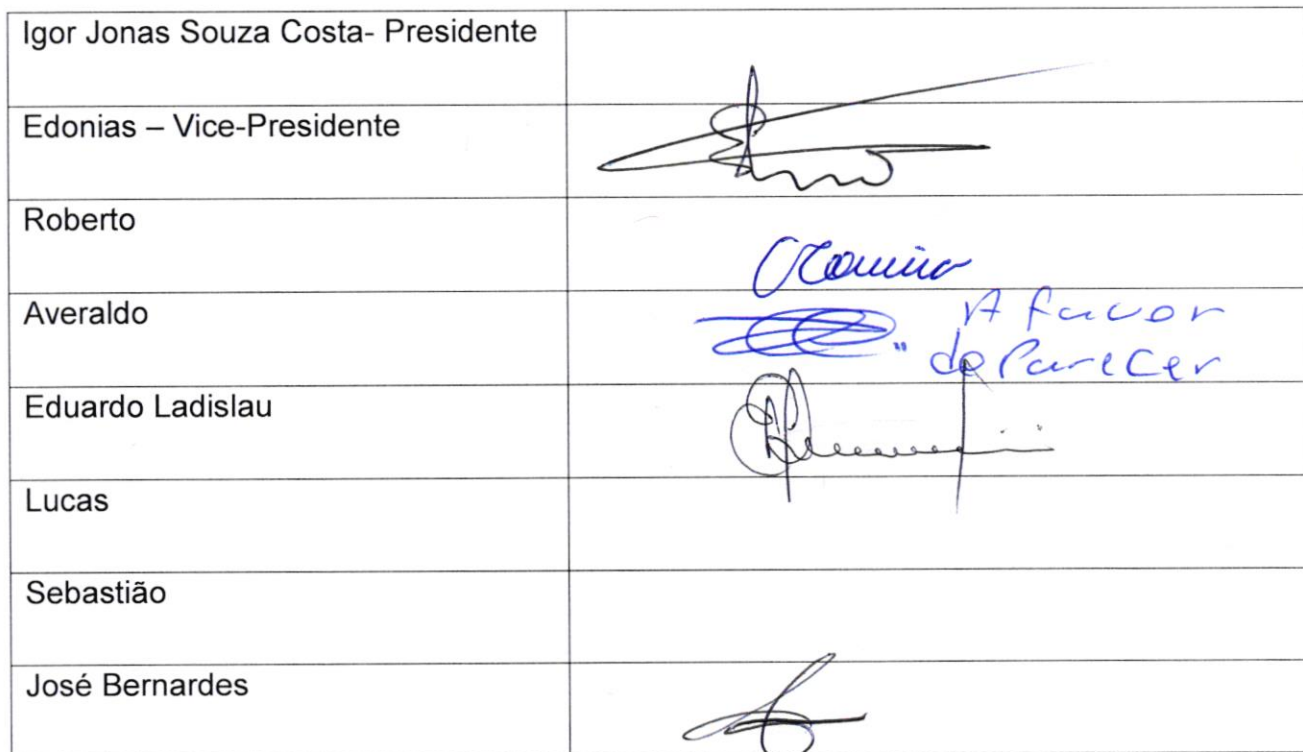 Igor Jonas Souza Costa- Presidente
Edonias – Vice-Presidente
Roberto
Averaldo
A favor
do Parecer
Eduardo Ladislau
Lucas
Sebastião
José Bernardes